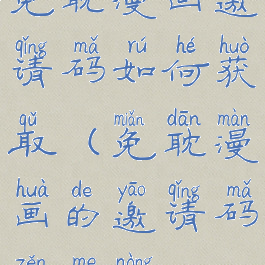 免耽漫画邀
qǐng mǎ rú hé huò
请码如何获
qǔ miǎn dān màn
取（免耽漫
huà de yāo qǐng mǎ
画的邀请码
zěn me nòng